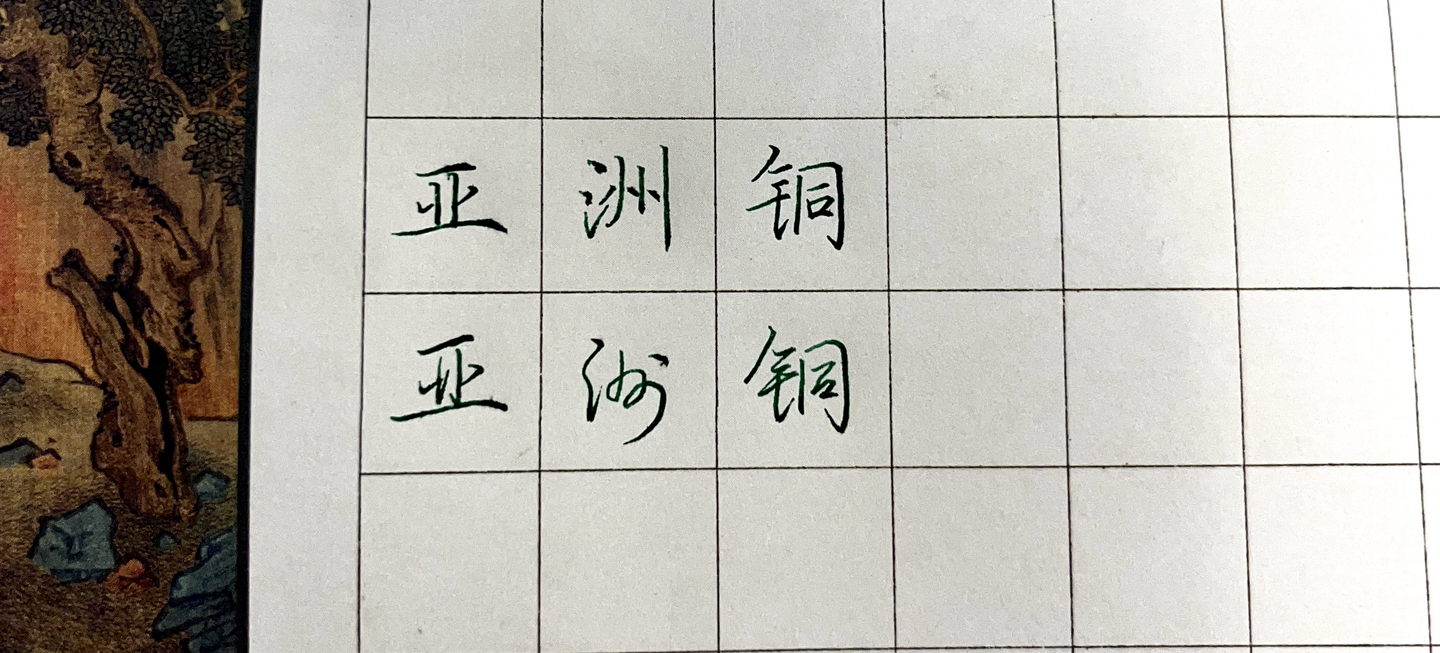 亚洲铜
亚洲铜